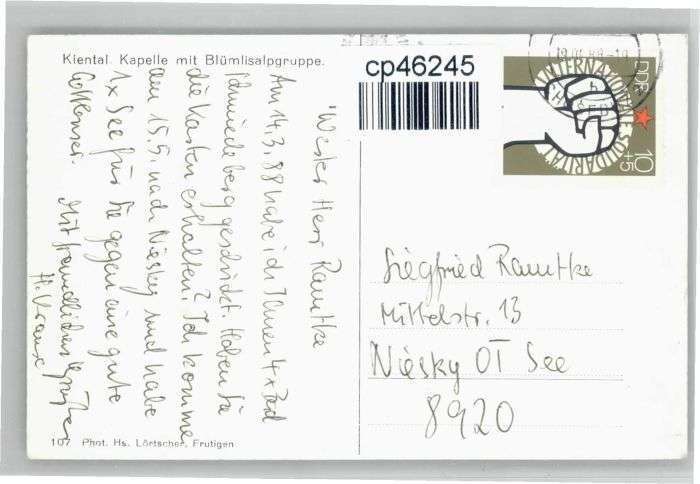 Kiental. Kapelle mit Blümlisalpgruppe.
cp46245
DDR
INTERNATIONALE SOLIDARITÄT
10
+5
Werter Herr Ramtke
Am 14.3.88 habe ich Ihnen 4x Bad
Schmiedeberg geschickt. Haben Sie
die Karten erhalten? Ich komme
am 15.5. nach Niesky und habe
1x See für Sie gegen eine gute
Mit freundlichen Grüßen
H.
Siegfried Ramtke
Mittelstr. 13
Niesky OT See
8920
107 Phot. Hs. Lörtscher, Frutigen